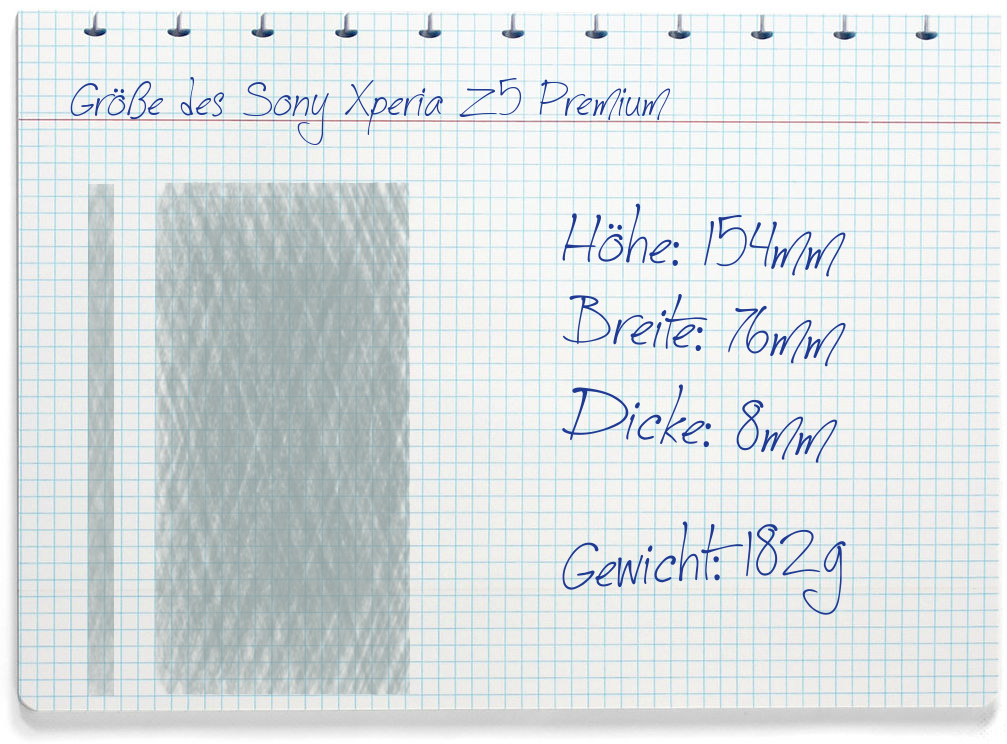 Größe des Sony Xperia Z5 Premium
Höhe: 154mm
Breite: 76mm
Dicke: 8mm
Gewicht: 182g